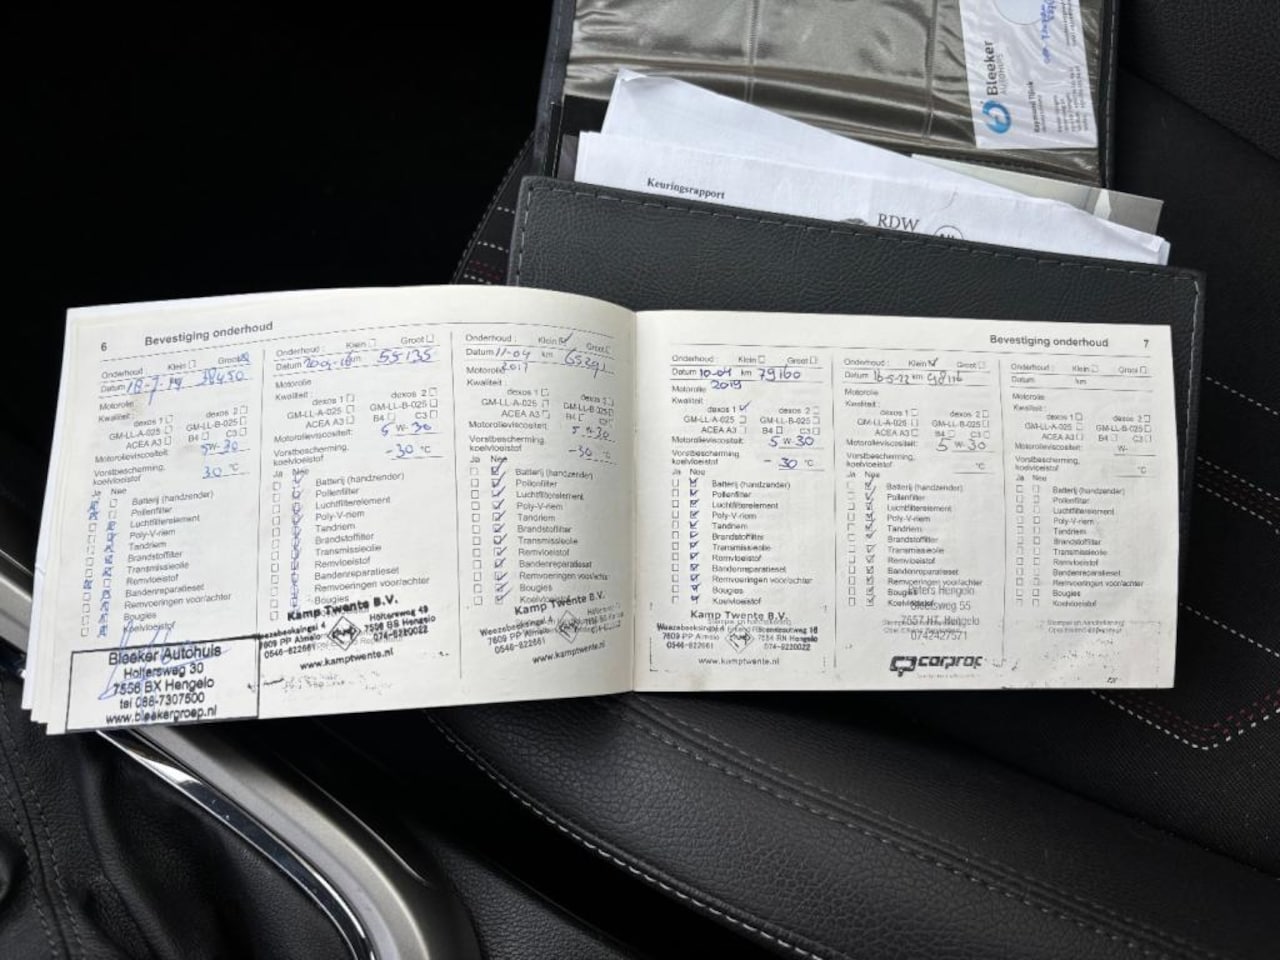 Bleeker
AUTOHUIS
Raymond Tibok
Keuringsrapport
RDW
6 Bevestiging onderhoud
Onderhoud : Klein Groot
Datum 18-7-14 38450
Motorolie
Kwaliteit : dexos 1 dexos 2
GM-LL-A-025 GM-LL-B-025
ACEA A3 B4 C3
Motorolieviscositeit: 5W-30
Vorstbescherming,
koelvloeistof 30 °C
Ja Nee
Batterij (handzender)
Pollenfilter
Luchtfilterelement
Poly-V-riem
Tandriem
Brandstoffilter
Transmissieolie
Remvloeistof
Bandenreparatieset
Remvoeringen voor/achter
Bougies
Koelvloeistof
Bleeker Autohuis
Holtersweg 30
7556 BX Hengelo
tel 088-7307500
www.bleekergroep.nl
Onderhoud : Klein Groot
Datum km 55135
Motorolie
Kwaliteit : dexos 1 dexos 2
GM-LL-A-025 GM-LL-B-025
ACEA A3 B4 C3
Motorolieviscositeit: 5 W-30
Vorstbescherming,
koelvloeistof -30 °C
Ja Nee
Batterij (handzender)
Pollenfilter
Luchtfilterelement
Poly-V-riem
Tandriem
Brandstoffilter
Transmissieolie
Remvloeistof
Bandenreparatieset
Remvoeringen voor/achter
Bougies
Kamp Twente B.V.
Weezebeeksingel 4 Holtersweg 49
7609 PP Almelo 7556 BS Hengelo
0546-822661 074-8220022
www.kamptwente.nl
Onderhoud : Klein Groot
Datum 11-04 km
2017
Motorolie
Kwaliteit :
dexos 1
GM-LL-A-025 GM-LL-B-025
ACEA A3 B4
Motorolieviscositeit: 5 W-30
Vorstbescherming,
koelvloeistof -30 °C
Ja Nee
Batterij (handzender)
Pollenfilter
Luchtfilterelement
Poly-V-riem
Tandriem
Brandstoffilter
Transmissieolie
Remvloeistof
Bandenreparatieset
Remvoeringen voor/achter
Bougies
Kamp Twente B.V.
Weezebeeksingel 4
7609 PP Almelo
0546-822661
www.kamptwente.nl
Bevestiging onderhoud 7
Onderhoud : Klein Groot
Datum 10-04 km 79160
Motorolie 2019
Kwaliteit :
dexos 1 dexos 2
GM-LL-A-025 GM-LL-B-025
ACEA A3 B4 C3
Motorolieviscositeit: 5 W-30
Vorstbescherming,
koelvloeistof - 30 °C
Ja Nee
Batterij (handzender)
Pollenfilter
Luchtfilterelement
Poly-V-riem
Tandriem
Brandstoffilter
Transmissieolie
Remvloeistof
Bandenreparatieset
Remvoeringen voor/achter
Bougies
Kamp Twente B.V.
Weezebeeksingel 4
7609 PP Almelo Hengelo
0546-822661 074-8220022
www.kamptwente.nl
Onderhoud : Klein Groot
Datum 16-5-22 km 98116
Motorolie
Kwaliteit :
dexos 1 dexos 2
GM-LL-A-025 GM-LL-B-025
ACEA A3 B4 C3
Motorolieviscositeit: 5 W-30
Vorstbescherming,
koelvloeistof °C
Ja Nee
Batterij (handzender)
Pollenfilter
Luchtfilterelement
Poly-V-riem
Tandriem
Brandstoffilter
Transmissieolie
Remvloeistof
Bandenreparatieset
Remvoeringen voor/achter
Hengelo
55
0742427571
carprof
Onderhoud : Klein Groot
Datum km
Motorolie
Kwaliteit :
dexos 1 dexos 2
GM-LL-A-025 GM-LL-B-025
ACEA A3 B4 C3
Motorolieviscositeit: W-
Vorstbescherming,
koelvloeistof °C
Ja Nee
Batterij (handzender)
Pollenfilter
Luchtfilterelement
Poly-V-riem
Tandriem
Brandstoffilter
Transmissieolie
Remvloeistof
Bandenreparatieset
Remvoeringen voor/achter
Bougies
Koelvloeistof